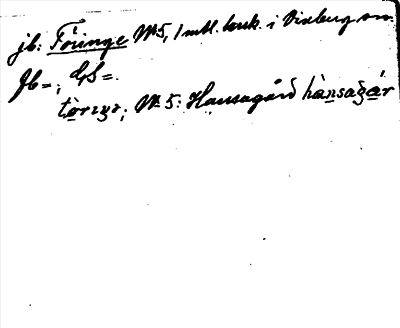 jb: Töringe No 5, 1 mtl. bruk. i Vinberg sn.
Jb =; ds =.
tòrıŋə; No 5: Hansagård hànsagår